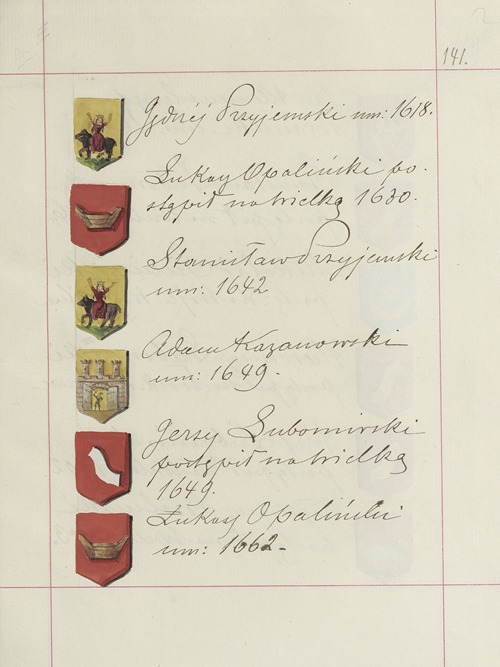 141.
Jędrzéj Przyjemski um: 1618.
Łukasz Opaliński po-
stąpił na wielką 1630.
Stanisław Przyjemski
um: 1642
Adam Kazanowski
um: 1649.
Jerzy Lubomirski
postąpił na wielką
1649.
Łukasz Opaliński
um: 1662-